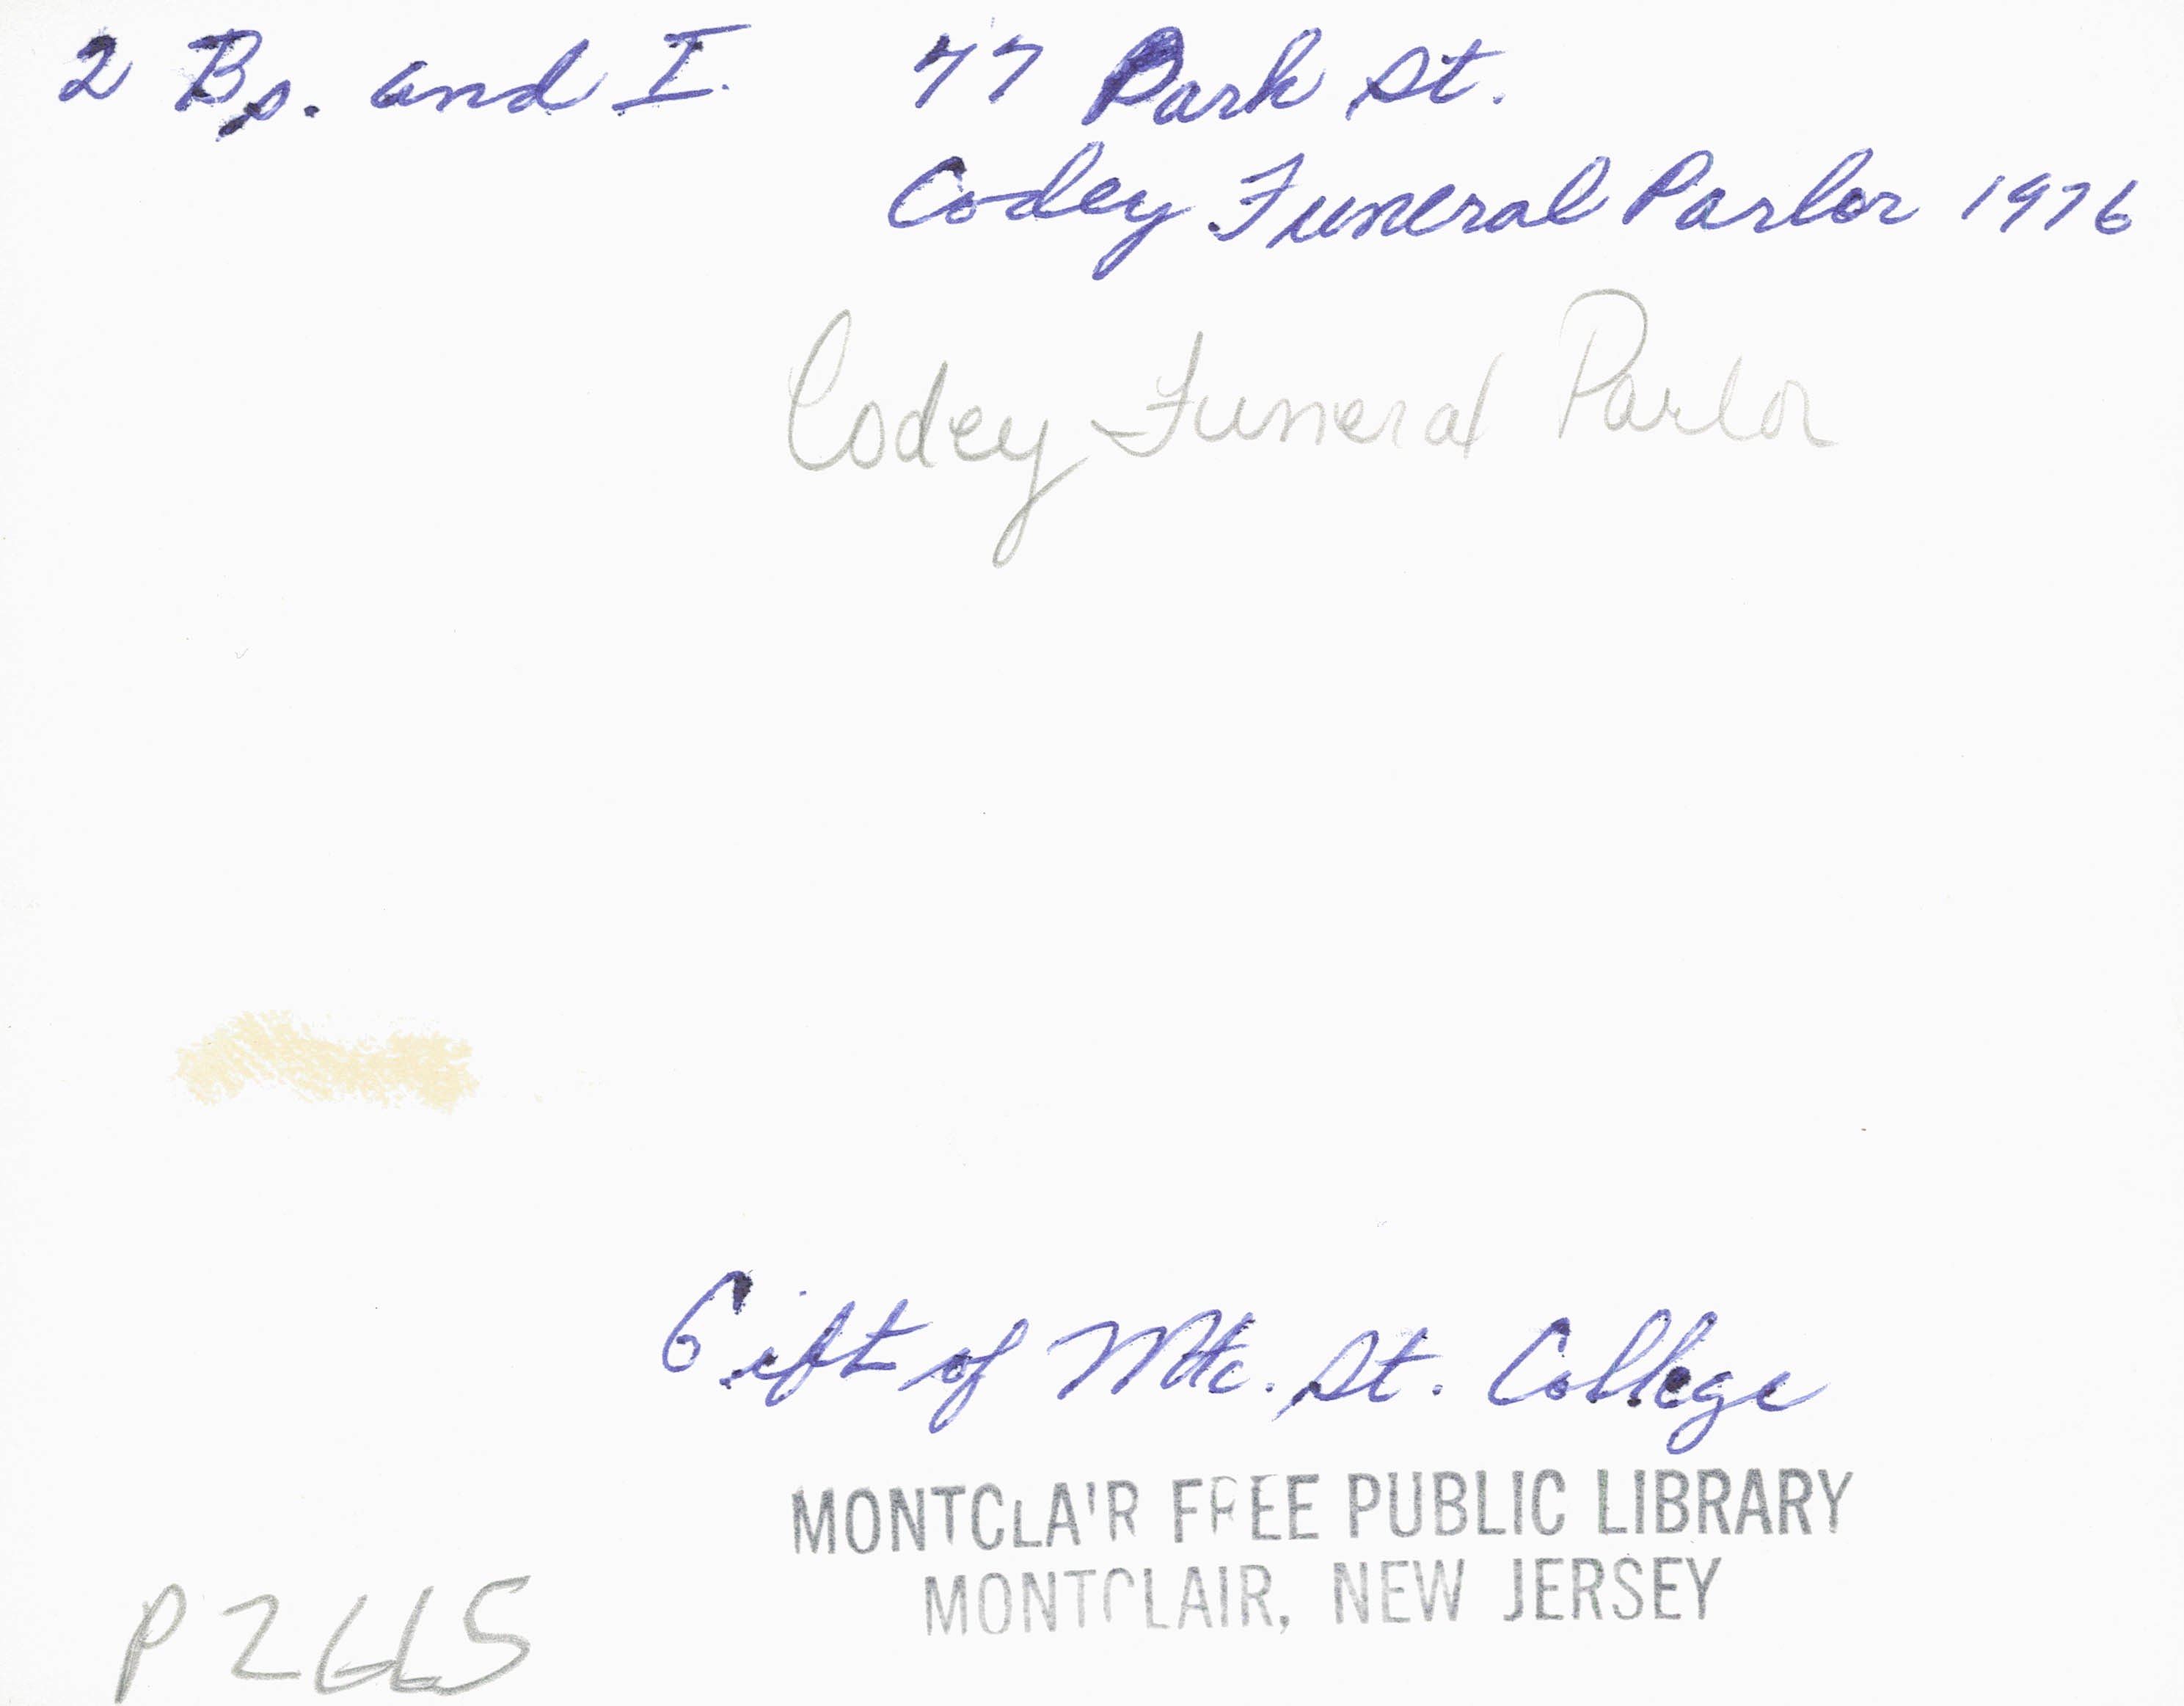 2 Bp. and I. 77 Park St.
Codey Funeral Parlor 1976
Codey Funeral Parlor
Gift of Mtc. St. College
MONTCLAIR FREE PUBLIC LIBRARY
MONTCLAIR, NEW JERSEY
P2665